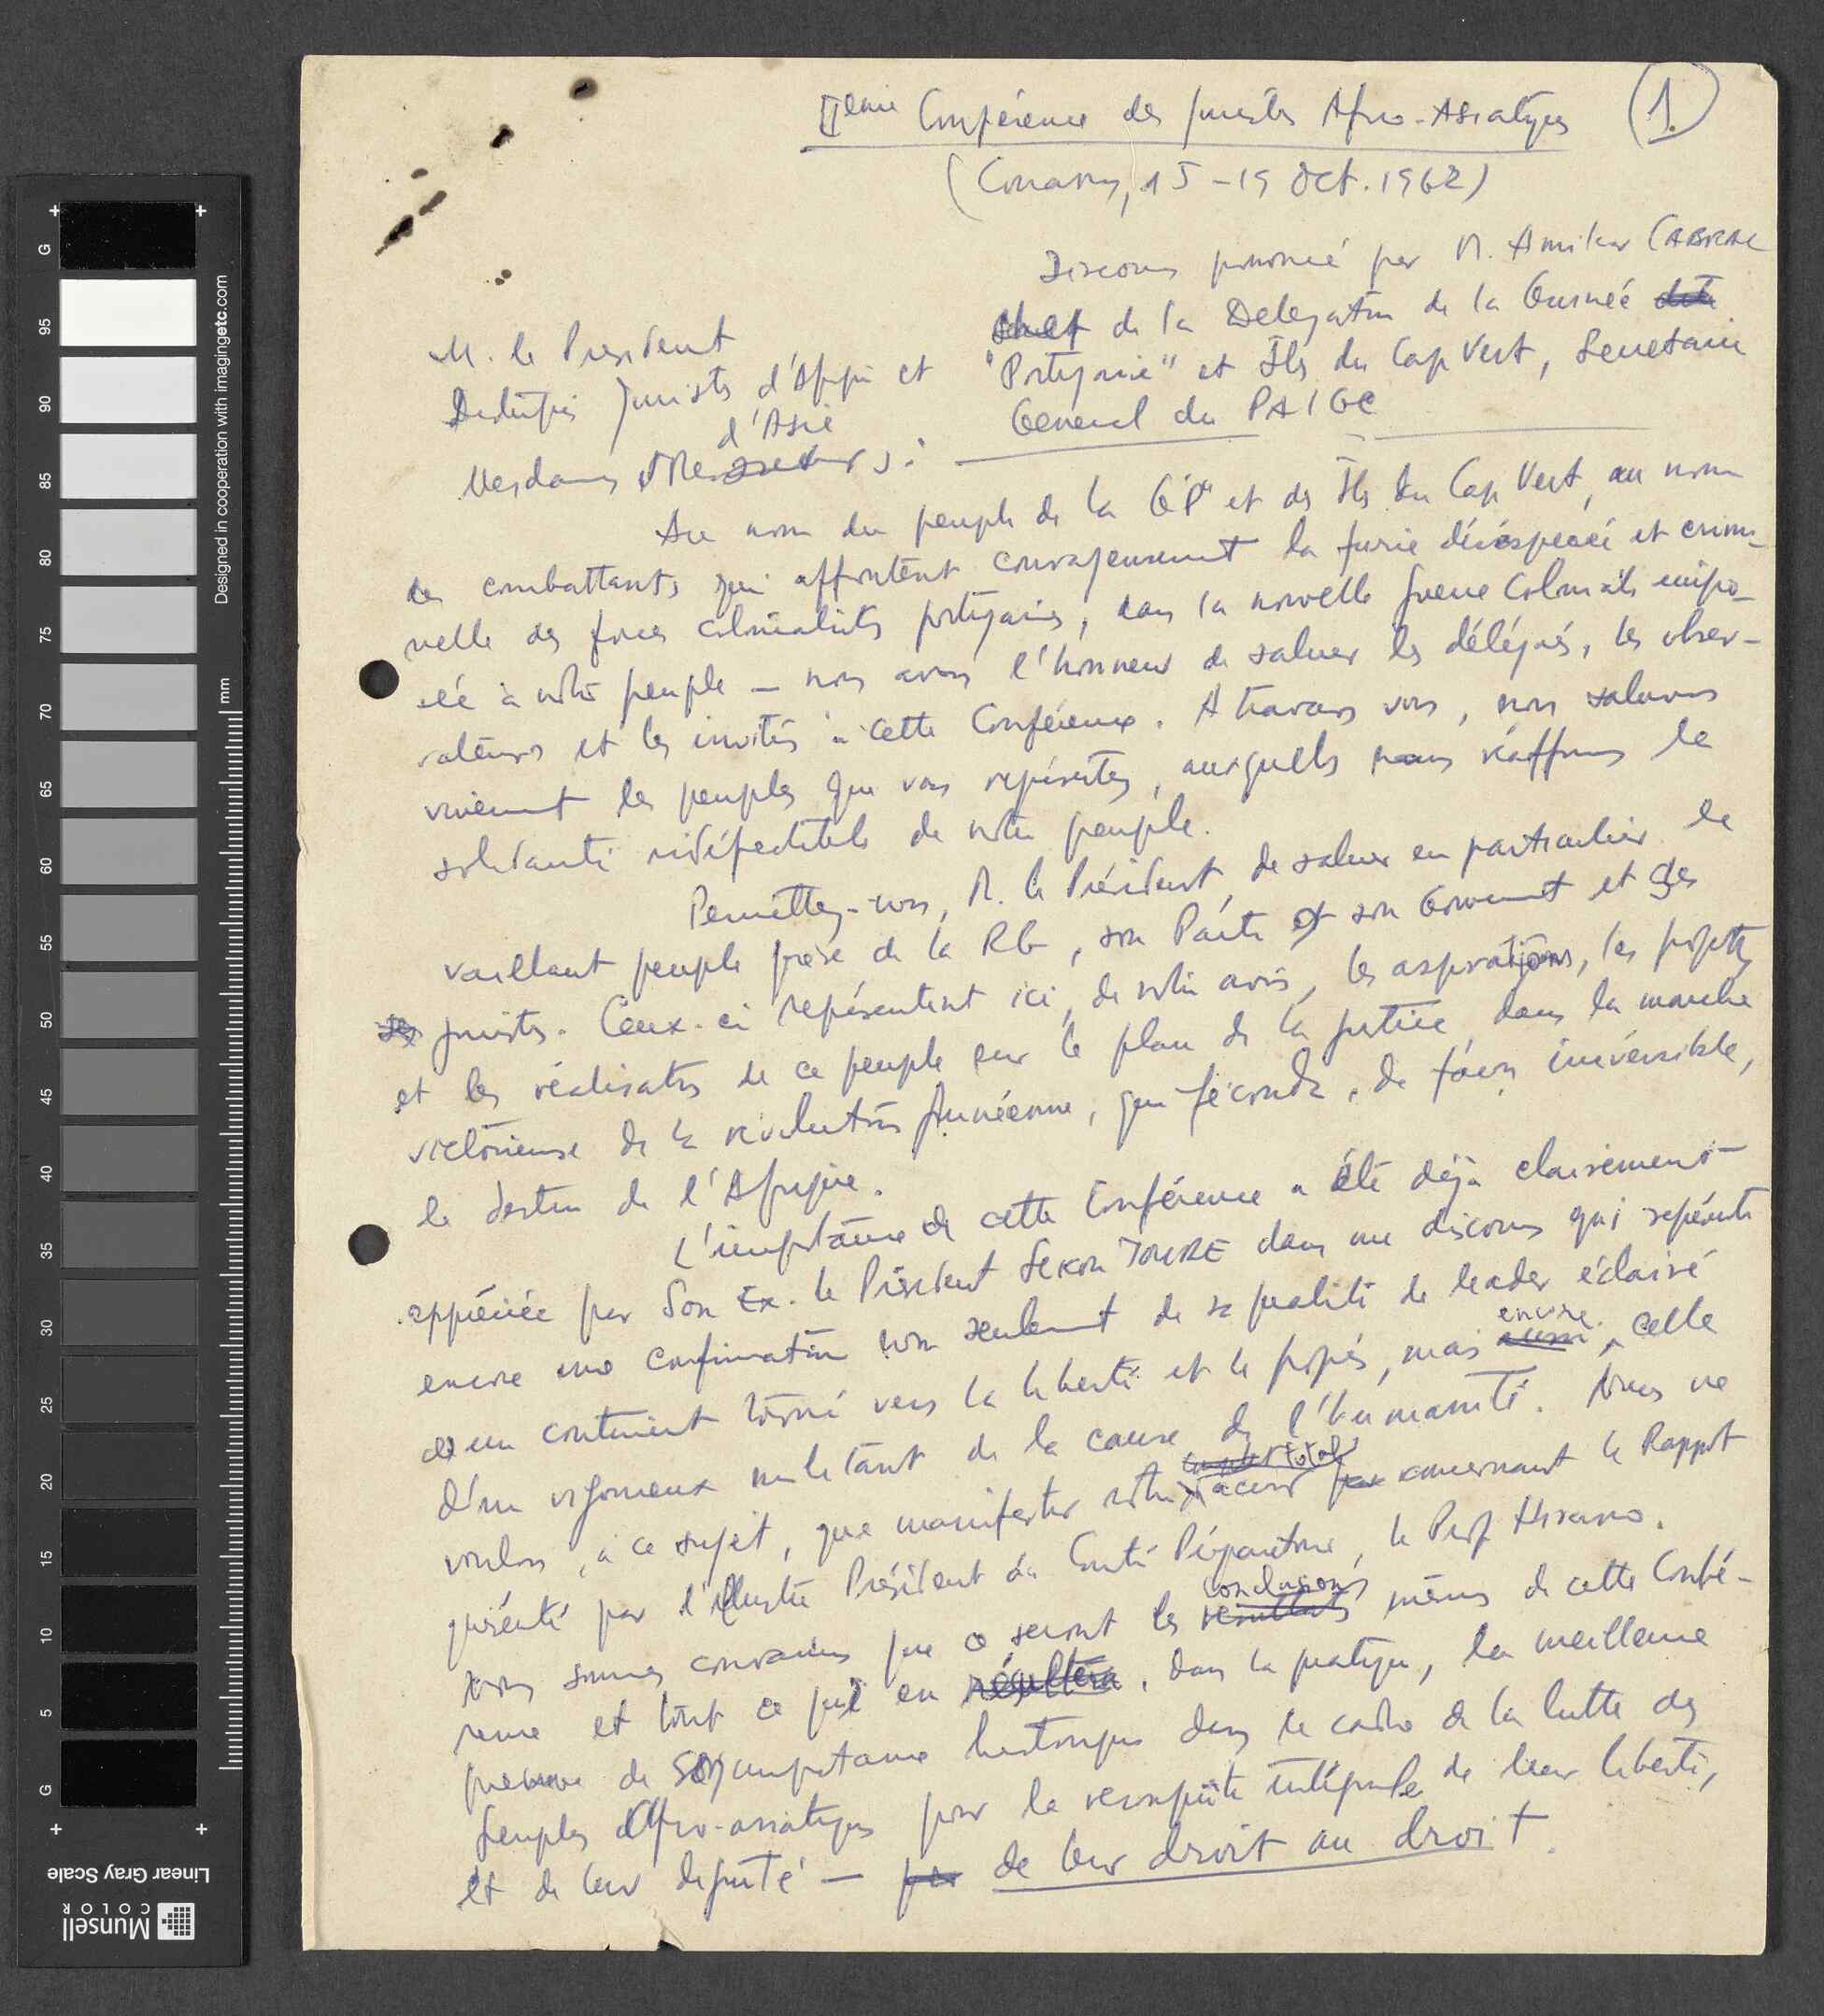 IIème Conférence des Juristes Afro-Asiatiques
1.
(Conakry, 15-19 Oct. 1962)
Discours prononcé par M. Amilcar CABRAL
Chef de la Delegation de la Guinée dite
"Portugaise" et Îles du Cap Vert, Secretaire
General du PAIGC
M. le President
Distingués Juristes d'Afrique et
d'Asie
Mesdames et Messieurs:
Au nom du peuple de la G"P" et des Îles du Cap Vert, au nom
des combattants qui affrontent courageusement la furie désésperée et crimi-
nelle des forces colonialistes portugaises, dans la nouvelle guerre coloniale impo-
sée à notre peuple — nous avons l'honneur de saluer les délégués, les obser-
vateurs et les invités à cette Conférence. A travers vous, nous saluons
vivement les peuples que vous représentez, auxquels nous réaffirmons la
solidarité indéfectible de notre peuple.
Permettez-nous, M. le Président, de saluer en particulier le
vaillant peuple frère de la RG, son Parti et son Gouvernement et ses
ses juristes. Ceux-ci représentent ici, de notre avis, les aspirations, les projets
et les réalisations de ce peuple sur le plan de la justice, dans la marche
victorieuse de la révolution guinéenne, qui féconde, de façon irréversible,
le destin de l'Afrique.
L'importance de cette Conférence a été déjà clairement
appréciée par Son Ex. le Président Sekou TOURE dans un discours qui représente
encore une confirmation non seulement de sa qualité de leader éclairé
d'un continent tourné vers la liberté et le progrès, mais aussi encore, celle
d'un vigoureux militant de la cause de l'humanité. Nous ne
voulons, à ce sujet, que manifester notre total accord concernant le Rapport
présenté par l'illustre Président du Comité Préparatoire, le Prof Hirano.
Nous sommes convaincus que ce seront les résultats conclusions mêmes de cette Confé-
rence et tout ce qui en résultera, dans la pratique, la meilleure
preuve de son importance historique dans le cadre de la lutte des
peuples afro-asiatiques pour la reconquête intégrale de leur liberté,
et de leur dignité — de leur droit au droit.
Designed in cooperation with imagingetc.com
mm
G
95
90
85
80
75
70
65
60
55
50
45
40
35
30
25
20
15
10
5
G
Linear Gray Scale
Munsell
COLOR